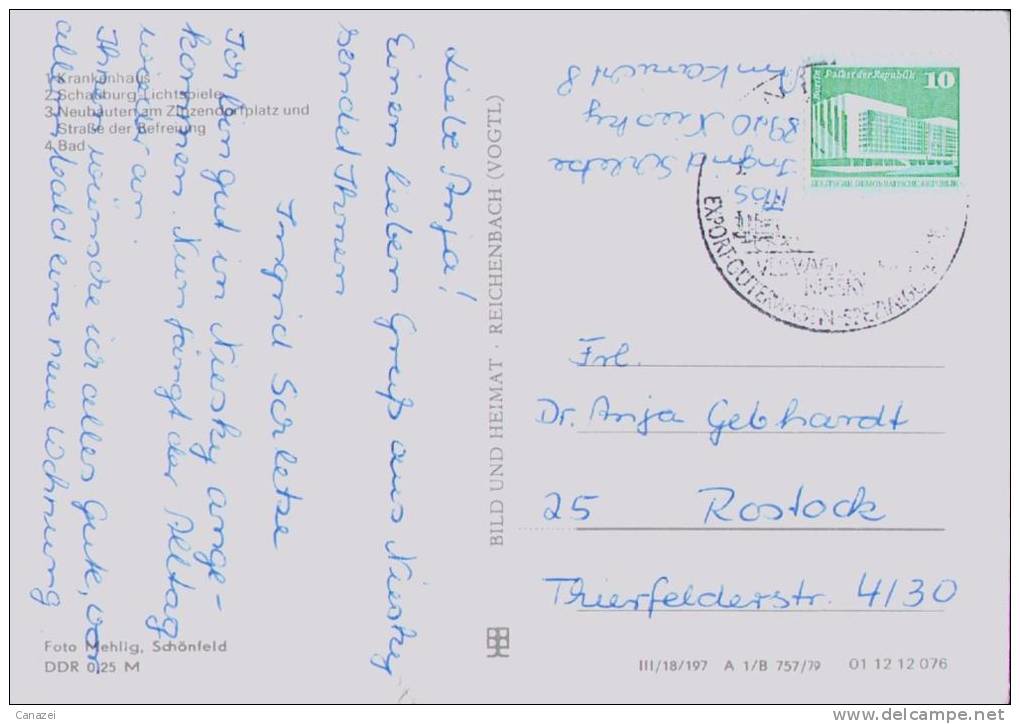 1 Krankenhaus
2 Schauburg Lichtspiele
3 Neubauten am Zinzendorfplatz und
Straße der Befreiung
4 Bad
Liebe Anja!
Einen lieben Gruß aus Niesky
sendet Ihnen
Ingrid Scrletze
Ich bin gut in Niesky ange-
kommen. Nun fängt der Alltag
wieder an.
Ihnen wünsche ich alles Gute, vor
allem bald eine neue Wohnung
BILD UND HEIMAT · REICHENBACH (VOGTL)
Abs
Ingrid
8920 Niesky
8
Palast der Republik
10
DEUTSCHE DEMOKRATISCHE REPUBLIK
NIESKY
EXPORT-GÜTERWAGEN-
Frl.
Dr. Anja Gebhardt
25 Rostock
Thierfelderstr. 4/30
Foto Mehlig, Schönfeld
DDR 0,25 M
III/18/197 A 1/B 757/79 01 12 12 076
Canazei
delcampe.net